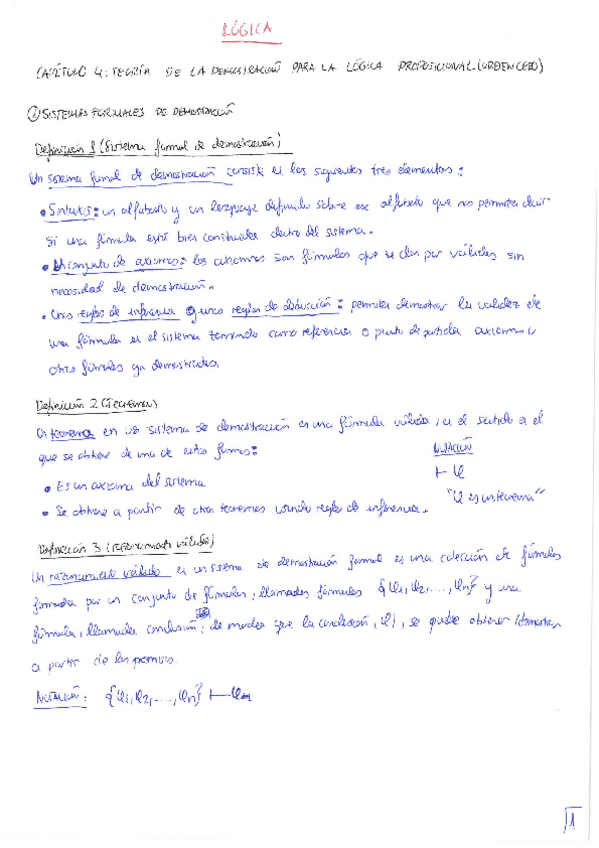 LÓGICA
CAPÍTULO 4: TEORÍA DE LA DEMOSTRACIÓN PARA LA LÓGICA PROPOSICIONAL (ORDEN CERO)
① SISTEMAS FORMALES DE DEMOSTRACIÓN
Definición 1 (Sistema formal de demostración)
Un sistema formal de demostración consiste en los siguientes tres elementos:
• Sintaxis: un alfabeto y un lenguaje definido sobre ese alfabeto que nos permiten decir
si una fórmula está bien construida dentro del sistema.
• Un conjunto de axiomas: los axiomas son fórmulas que se dan por válidas sin
necesidad de demostración.
• Unas reglas de inferencia o unas reglas de deducción: permiten demostrar la validez de
una fórmula en el sistema tomando como referencia o punto de partida axiomas u
otras fórmulas ya demostradas.
Definición 2 (Teorema)
Un teorema en un sistema de demostración es una fórmula válida, en el sentido en el
que se obtiene de una de estas formas:
NOTACIÓN
⊢ φ
"φ es un teorema"
• Es un axioma del sistema
• Se obtiene a partir de otros teoremas usando reglas de inferencia.
Definición 3 (razonamiento válido)
Un razonamiento válido en un sistema de demostración formal es una colección de fórmulas
formada por un conjunto de fórmulas, llamadas fórmulas {φ1, φ2, ..., φn} y una
fórmula, llamada conclusión, de modo que la conclusión, φ, se puede obtener/demostrar
a partir de las premisas.
NOTACIÓN: {φ1, φ2, ..., φn} ⊢ φ
1